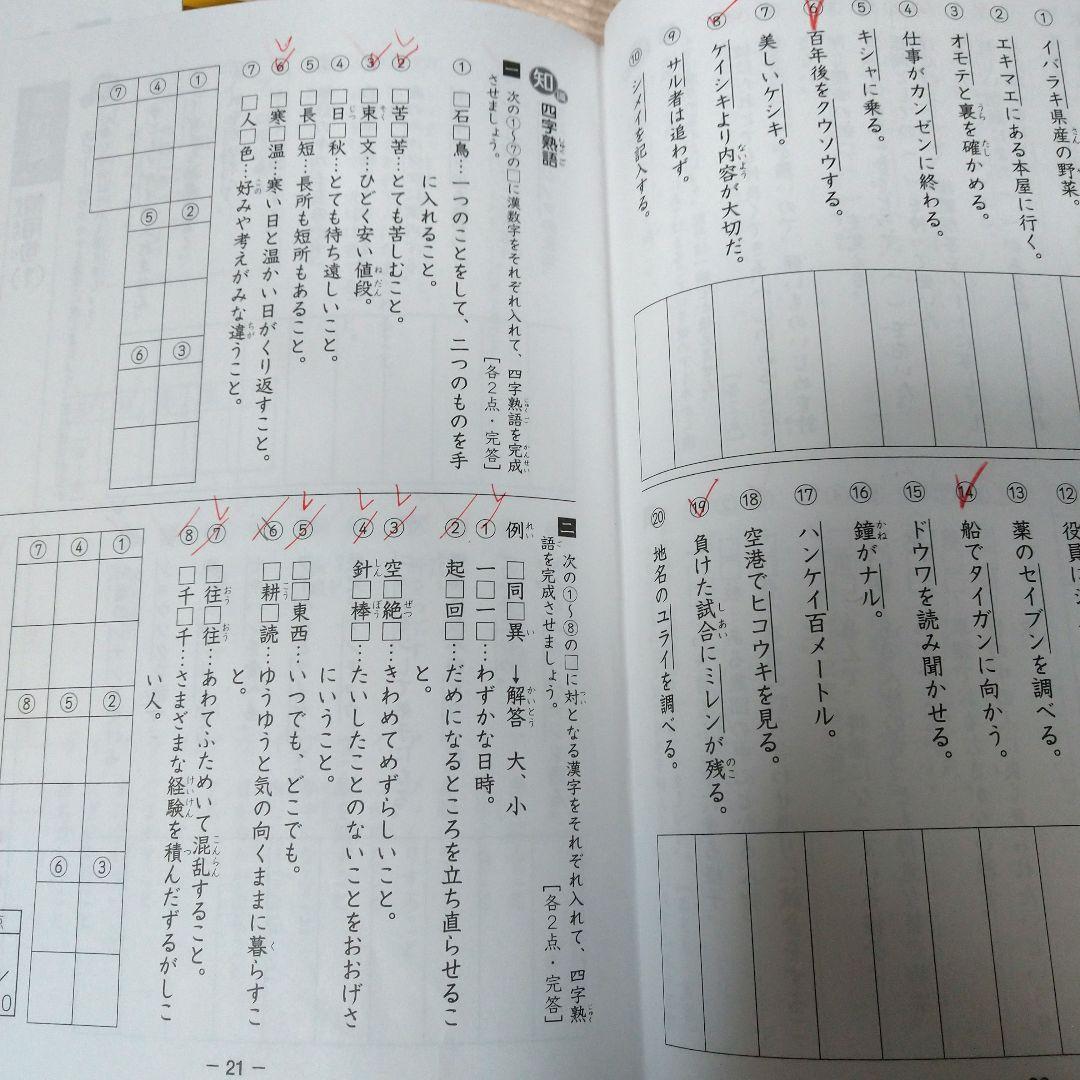 ① イバラキ県産の野菜。
② エキマエにある本屋に行く。
③ オモテと裏を確かめる。
④ 仕事がカンゼンに終わる。
⑤ キシャに乗る。
⑥ 百年後をクウソウする。
⑦ 美しいケシキ。
⑧ ケイシキより内容が大切だ。
⑨ サル者は追わず。
⑩ シメイを記入する。
⑫ 役員に
⑬ 薬のセイブンを調べる。
⑭ 船でタイガンに向かう。
⑮ ドウワを読み聞かせる。
⑯ 鐘がナル。
⑰ ハンケイ百メートル。
⑱ 空港でヒコウキを見る。
⑲ 負けた試合にミレンが残る。
⑳ 地名のユライを調べる。
知識 四字熟語
一 次の①〜⑦の□に漢数字をそれぞれ入れて、四字熟語を完成
させましょう。
[各2点・完答]
① □石□鳥…一つのことをして、二つのものを手
に入れること。
② □苦□苦…とても苦しむこと。
③ □束□文…ひどく安い値段。
④ □日□秋…とても待ち遠しいこと。
⑤ □長□短…長所も短所もあること。
⑥ □寒□温…寒い日と温かい日がくり返すこと。
⑦ □人□色…好みや考えがみな違うこと。
① ④ ⑦
② ⑤
③ ⑥
二 次の①〜⑧の□に対となる漢字をそれぞれ入れて、四字熟
語を完成させましょう。
[各2点・完答]
例 □同□異 →解答 大、小
① 一□一□…わずかな日時。
② 起□回□…だめになるところを立ち直らせるこ
と。
③ 空□絶□…きわめてめずらしいこと。
④ 針□棒□…たいしたことのないことをおおげさ
にいうこと。
⑤ □□東西…いつでも、どこでも。
⑥ □耕□読…ゆうゆうと気の向くままに暮らすこ
と。
⑦ □往□往…あわてふためいて混乱すること。
⑧ □千□千…さまざまな経験を積んだずるがしこ
い人。
① ④ ⑦
② ⑤ ⑧
③ ⑥
－21－